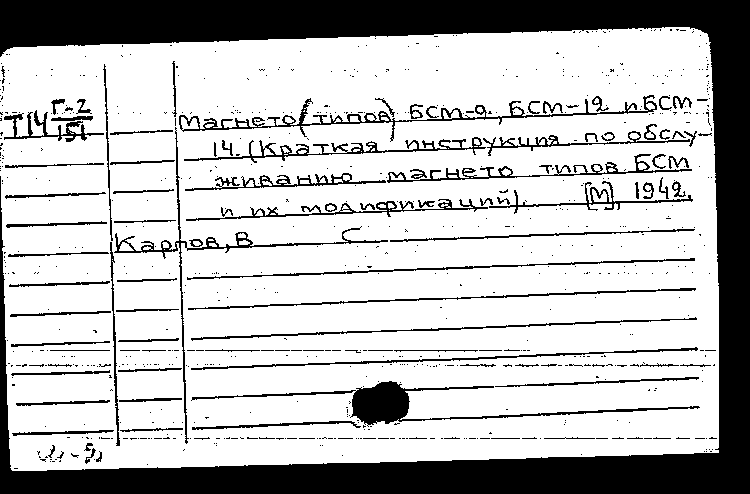 Т14 Г-2/151
Магнето (типов) БСМ-9., БСМ-12 и БСМ-
14. (Краткая инструкция по обслу-
живанию магнето типов БСМ
и их модификаций). [М], 1942.
Карпов, В С